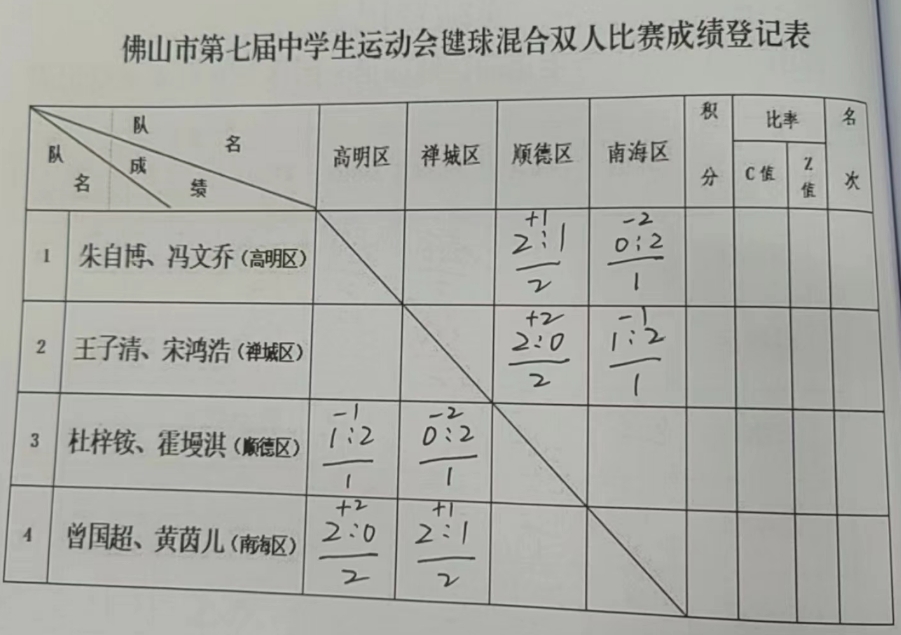 佛山市第七届中学生运动会毽球混合双人比赛成绩登记表
队名 成绩 队名 高明区 禅城区 顺德区 南海区 积分 比率 C值 Z值 名次
1 朱自博、冯文乔(高明区) +1 2:1 2 -2 0:2 1
2 王子清、宋鸿浩(禅城区) +2 2:0 2 -1 1:2 1
3 杜梓铵、霍墁淇(顺德区) -1 1:2 1 -2 0:2 1
4 曾国超、黄茵儿(南海区) +2 2:0 2 +1 2:1 2